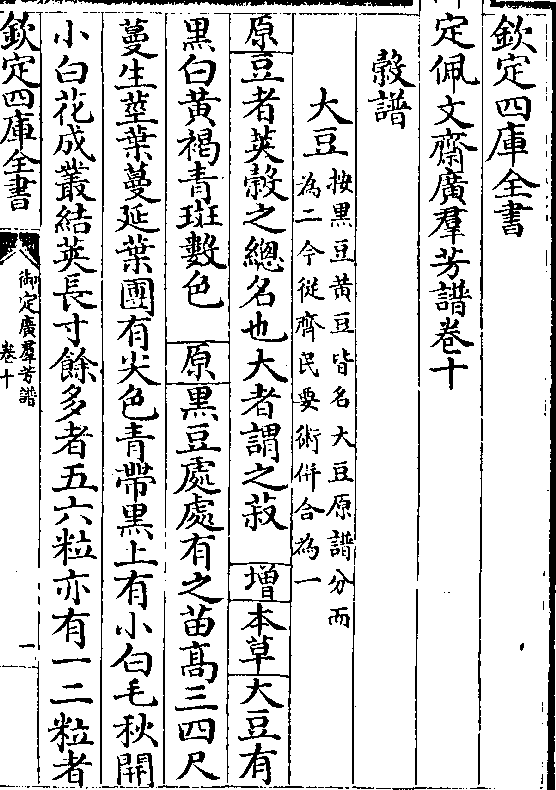 欽定四庫全書
定佩文齋廣羣芳譜卷十
穀譜
大豆
按黒豆黄豆皆名大豆原譜分而
為二今從齊民要術併合為一
原豆者英穀之總名也大者謂之菽 增本草大豆有
黒白黄褐青斑數色 原黒豆處處有之苗髙三四尺
蔓生莖葉蔓延葉團有尖色青帶黒上有小白毛秋開
小白花成叢結莢長寸餘多者五六粒亦有一二粒者
欽定四庫全書
御定廣羣芳譜
卷十
一